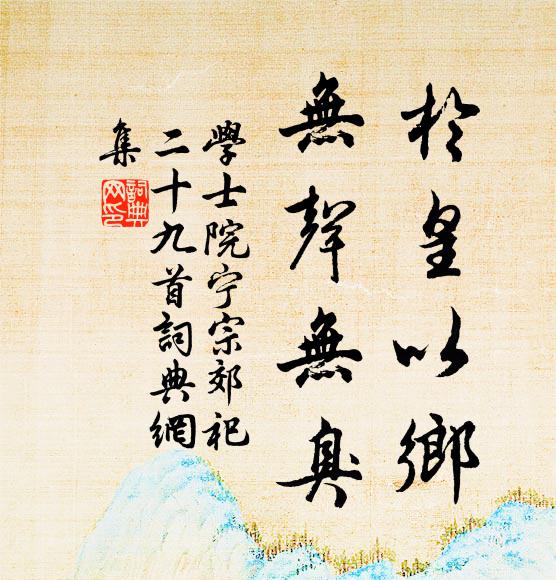 於皇以鄉
無聲無臭
學士院宁宗郊祀
二十九首詞典網
集
詞典
网印